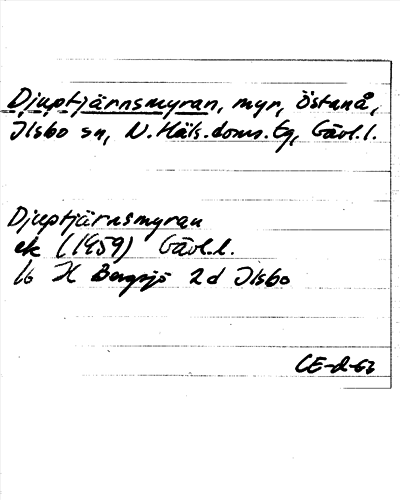 Djuptjärnsmyran, myr, Östanå,
Ilsbo sn, N. Häls. doms. tg, Gävl. l.
Djuptjärnsmyran
ek (1959) Gävl. l.
16 H Bergsjö 2 d Ilsbo
CE-d-62